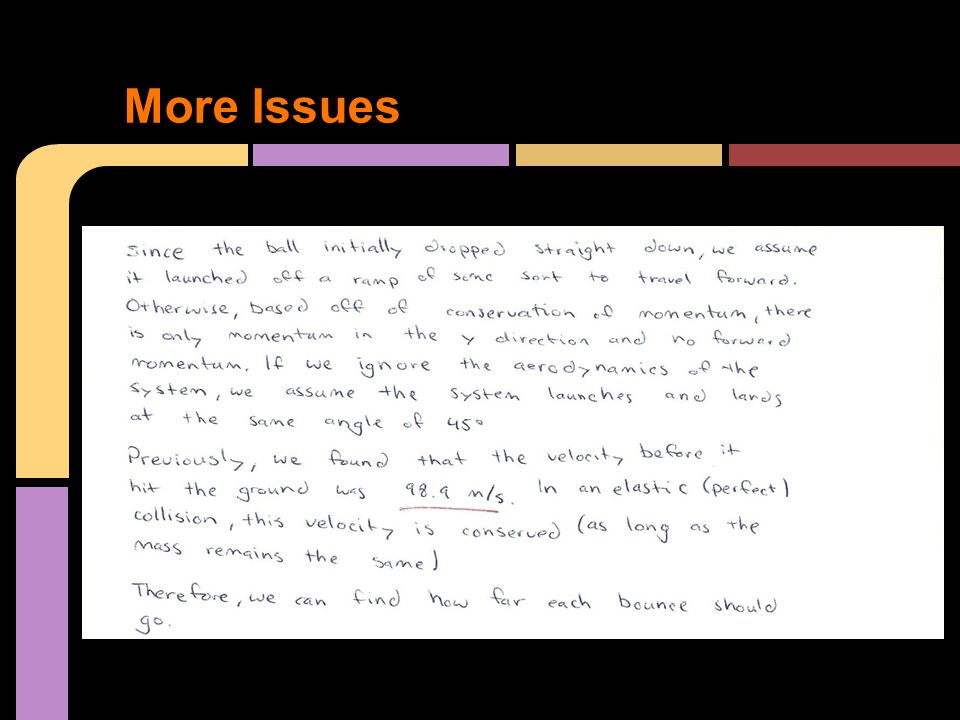 More Issues
Since the ball initially dropped straight down, we assume
it launched off a ramp of some sort to travel forward.
Otherwise, based off of conservation of momentum, there
is only momentum in the y direction and no forward
momentum. If we ignore the aerodynamics of the
system, we assume the system launches and lands
at the same angle of 45°
Previously, we found that the velocity before it
hit the ground was 98.9 m/s. In an elastic (perfect)
collision, this velocity is conserved (as long as the
mass remains the same)
Therefore, we can find how far each bounce should
go.